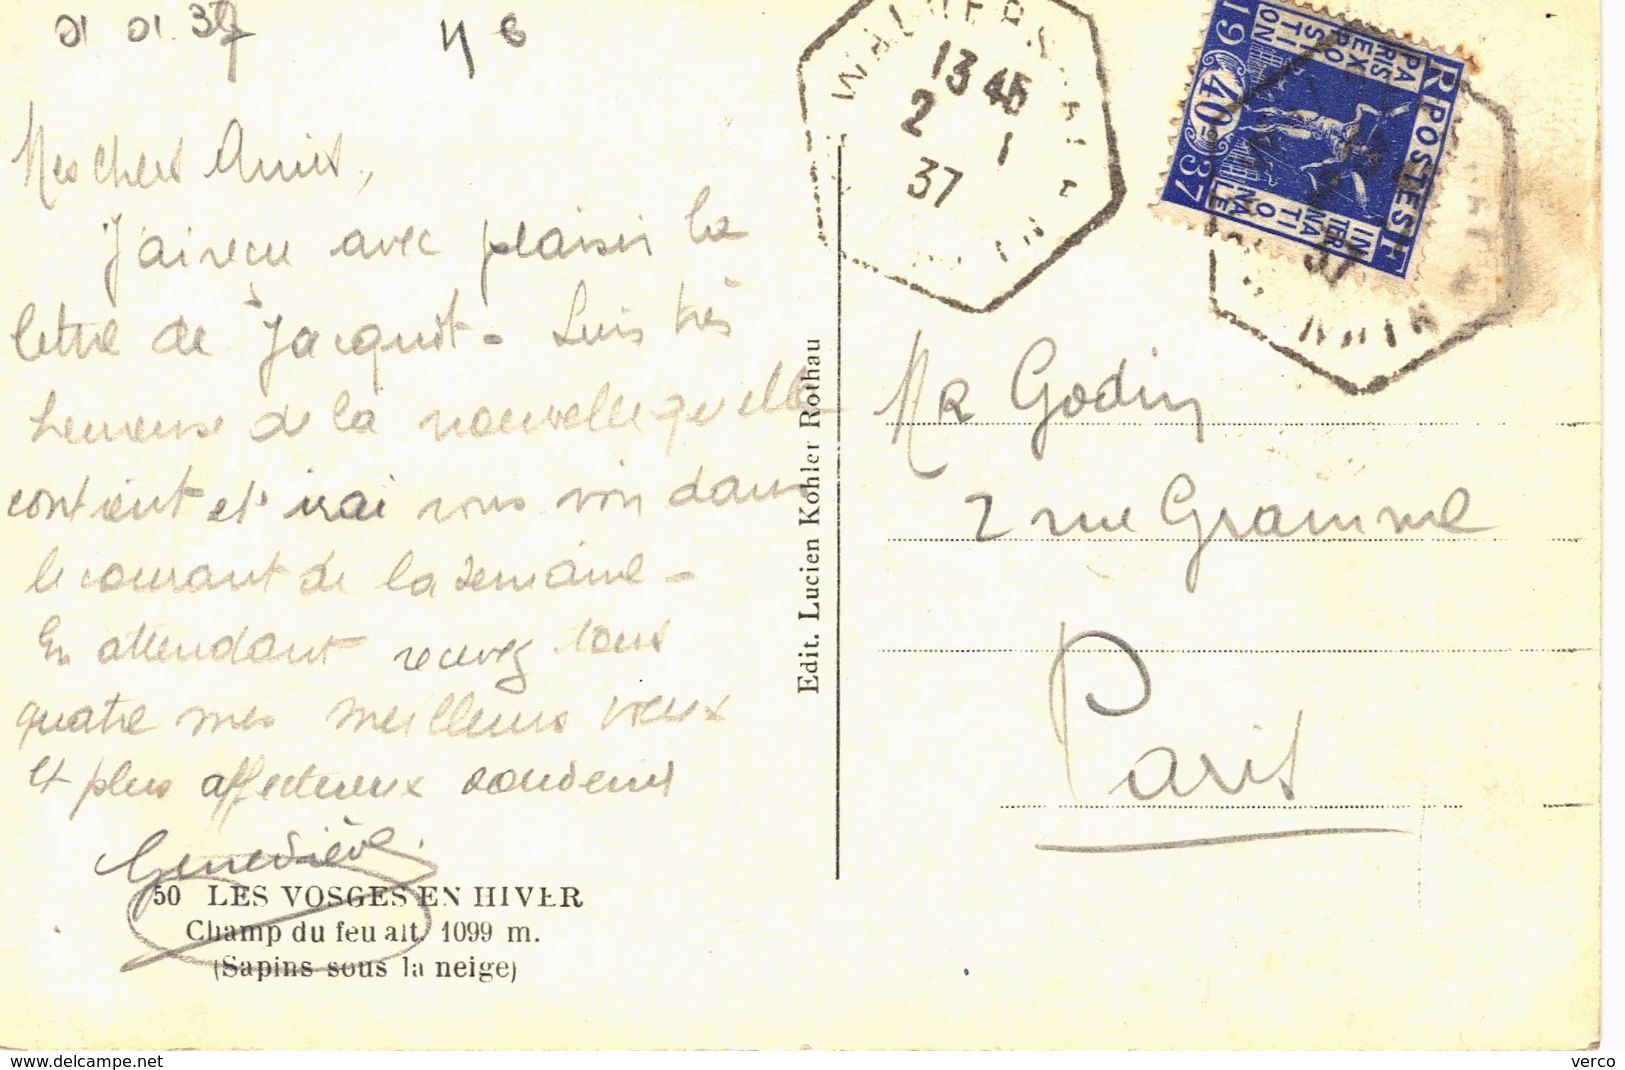 01 01.37
Mes chers Amis,
J'ai reçu avec plaisir la
lettre de Jacquot - Suis très
heureuse de la nouvelle qu'elle
contient et irai vous voir dans
le courant de la semaine -
En attendant recevez tous
quatre mes meilleurs vœux
et plus affectueux souvenirs
Geneviève.
50 LES VOSGES EN HIVER
Champ du feu alt. 1099 m.
(Sapins sous la neige)
Edit. Lucien Kohler Rothau
13 45
2 1
37
RF POSTES
PARIS
EXPOSITION
INTERNATIONALE
19 40c 37
37
Mr Godin
2 rue Gramme
Paris
www.delcampe.net
verco